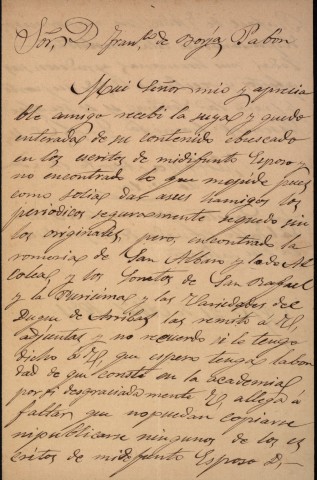 Sór. D. Fran.co de Borja Pabón
Mui Señor mio y aprecia
ble amigo recibi la suya y quedo
enterada de su contenido ebuscado
en los escritos de midifunto Esposo y
no encontrado lo que mepide pues
como solia dar asus hamigos los
periodicos seguramente sequedo sin
los originales, pero, encontrado la
romeria de San Alberto y lade Al
colea, y los Sonetos de San Rafael
y la Purisima y las Variedades del
Duque de Arribas las remito á V.
adjuntas — no recuerdo si lo tengo
dicho á V. que espero tenga labon
dad de que conste en la academia
por si desgraciadamente V. allega á
faltar que nopuedan copiarse
nipublicarse ningunos de los es
critos de midifunto Esposo D.—